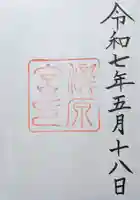 令和七年五月十八日